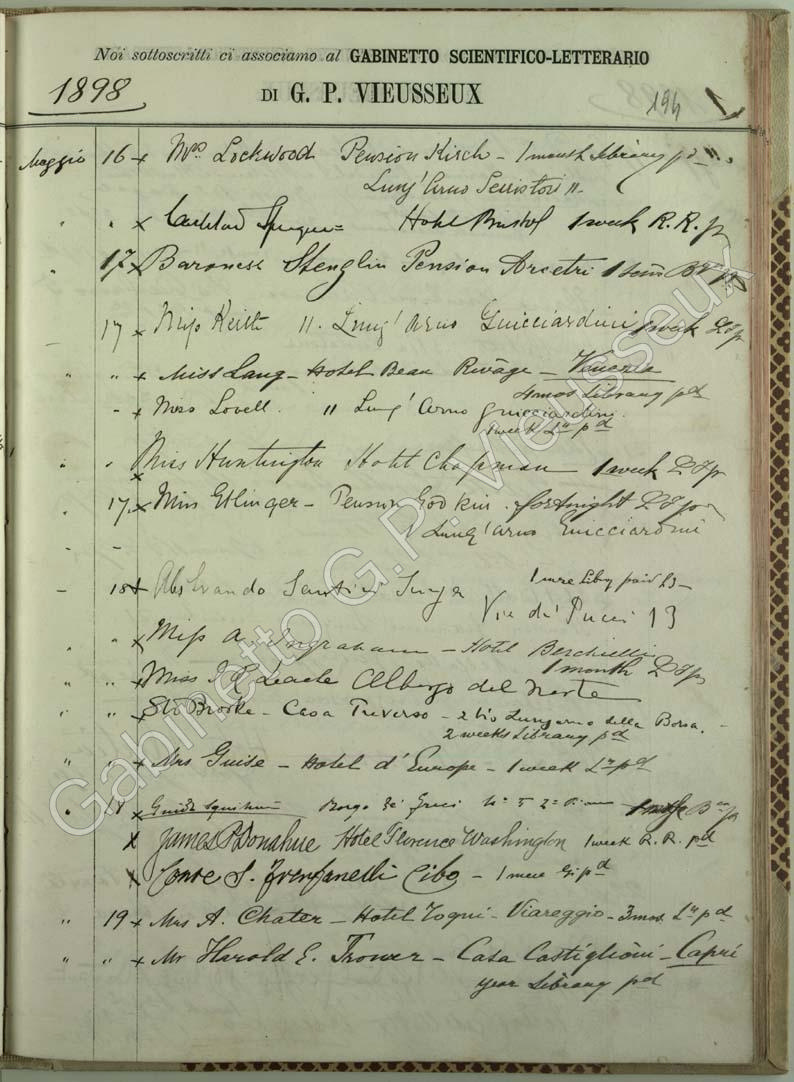 Noi sottoscritti ci associamo al GABINETTO SCIENTIFICO-LETTERARIO
1898
DI G. P. VIEUSSEUX
194
Maggio 16 x Mrs Lockwood Pension Kirch - 1 month Library pd
Lung'Arno Serristori 11.
" " x Hotel Bristol 1 week R. R. p
" 17 x Baroness Stenglin Pension Arcetri 1 p
17 x Miss Keith 11. Lung'Arno Guicciardini 1 week p
" " x Miss Lang - Hotel Beau Rivage - Venezia
4 mos Library pd
" x Miss Lovell. 11 Lung'Arno Guicciardini.
1 week Ly pd
" " x Miss Huntington Hotel Chapman 1 week p
17 x Miss Etlinger - Pension Godkin. fortnight
Lung'Arno Guicciardini
18 x Santini
Via de' Pucci 13
" x Miss A. Ingraham - Hotel Berchielli
1 month
" " x Miss Albergo del Norte
" " x Brooke - Casa Traverso - 2 bis Lungarno della Borsa.
2 weeks Library pd
" " x Mrs Guise - Hotel d'Europe - 1 week Ly pd
" 18 x Borgo de' Greci No 5 2o
x James P Donahue Hotel Florence Washington 1 week R. R. pd
x Conte Cibo - 1 pd
" 19 x Mrs A. Chater - Hotel Togni - Viareggio - 3 mos. Ly pd
" " x Mr Harold E. Trower - Casa Castiglioni - Capri
year Library pd
Gabinetto G.P. Vieusseux